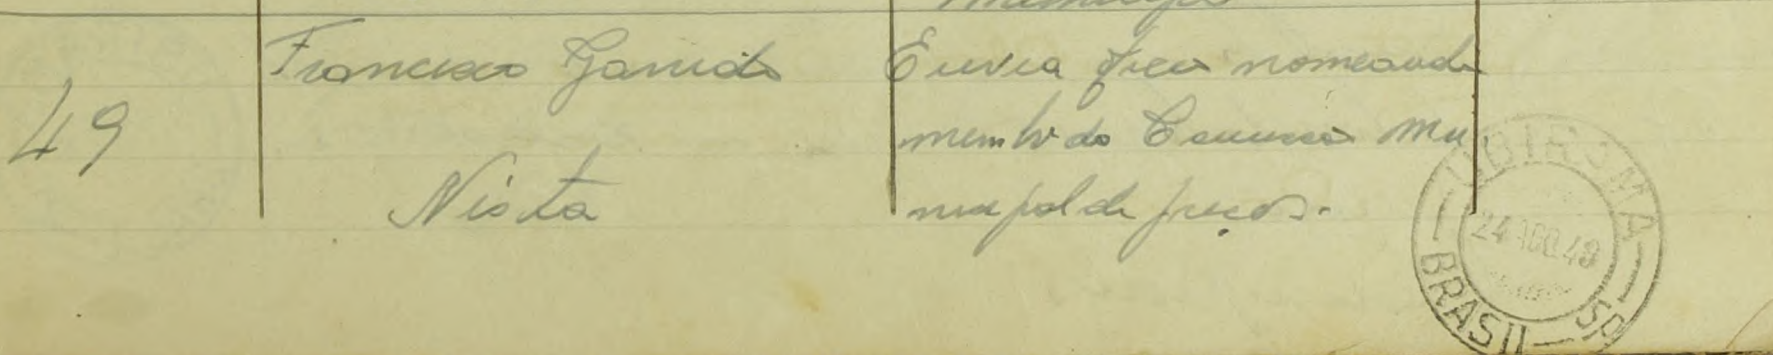 Francisco Garrido
49
Nista
Envia
nomeando
membro da Comissão Mu
nicipal de preços.
UBIRAMA
24 AGO 49
BRASIL — SP